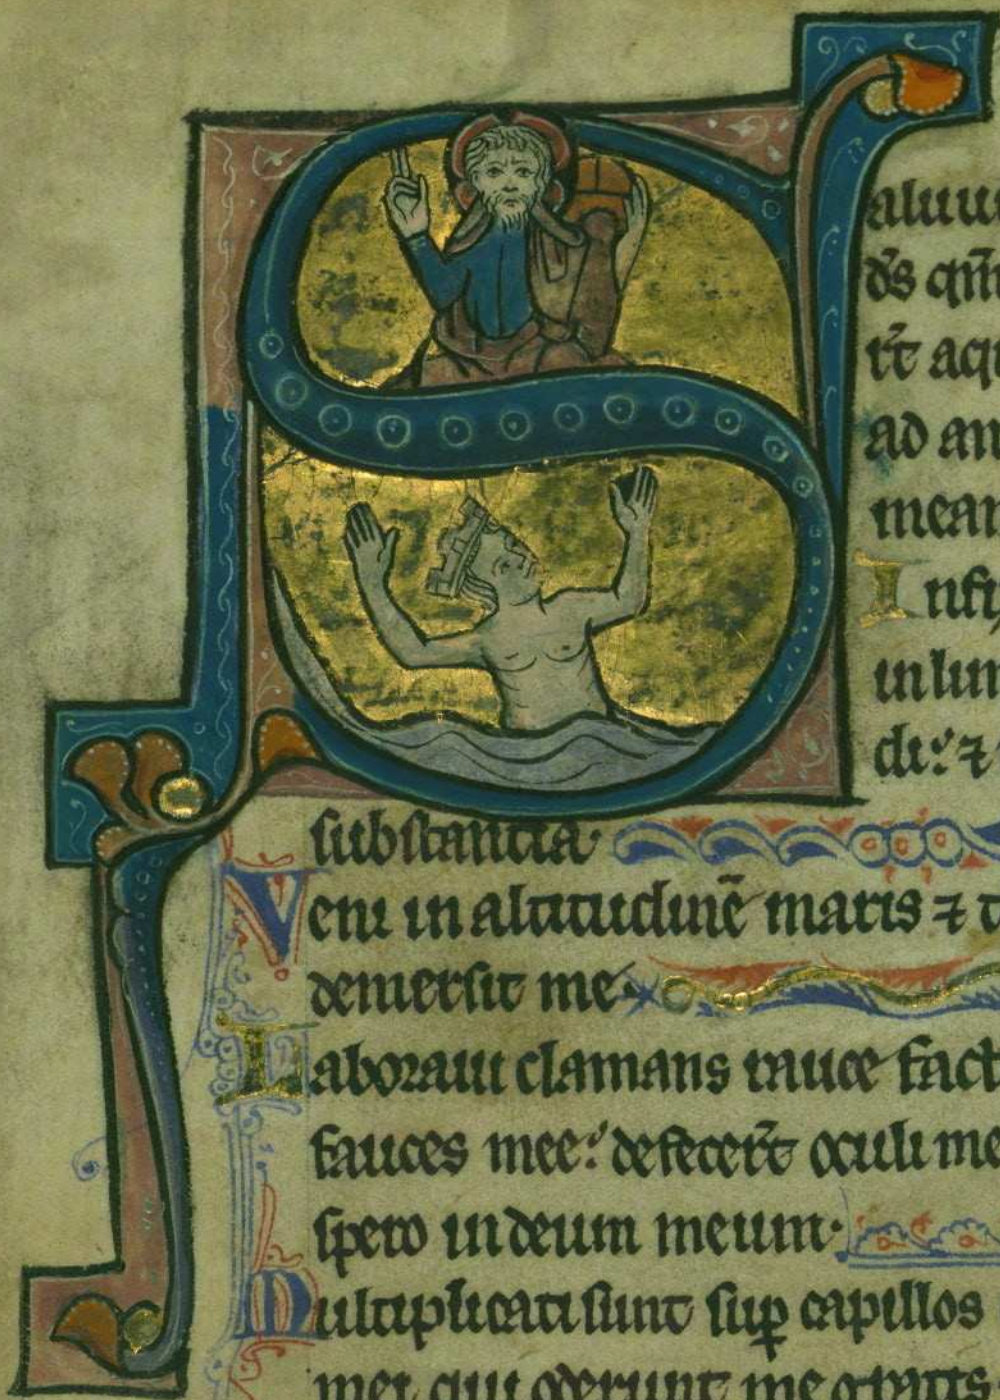 S
aluu
ds qm
rt aq
ad an
mean
Infi
in lim
di: ⁊
substantia·
Veni in altitudinē maris ⁊ t
demersit me·
Laboraui clamans rauce fact
fauces mee: defecert oculi me
spero in deum meum·
Multiplicati sunt sup capillos
mei qui oderunt me gratis